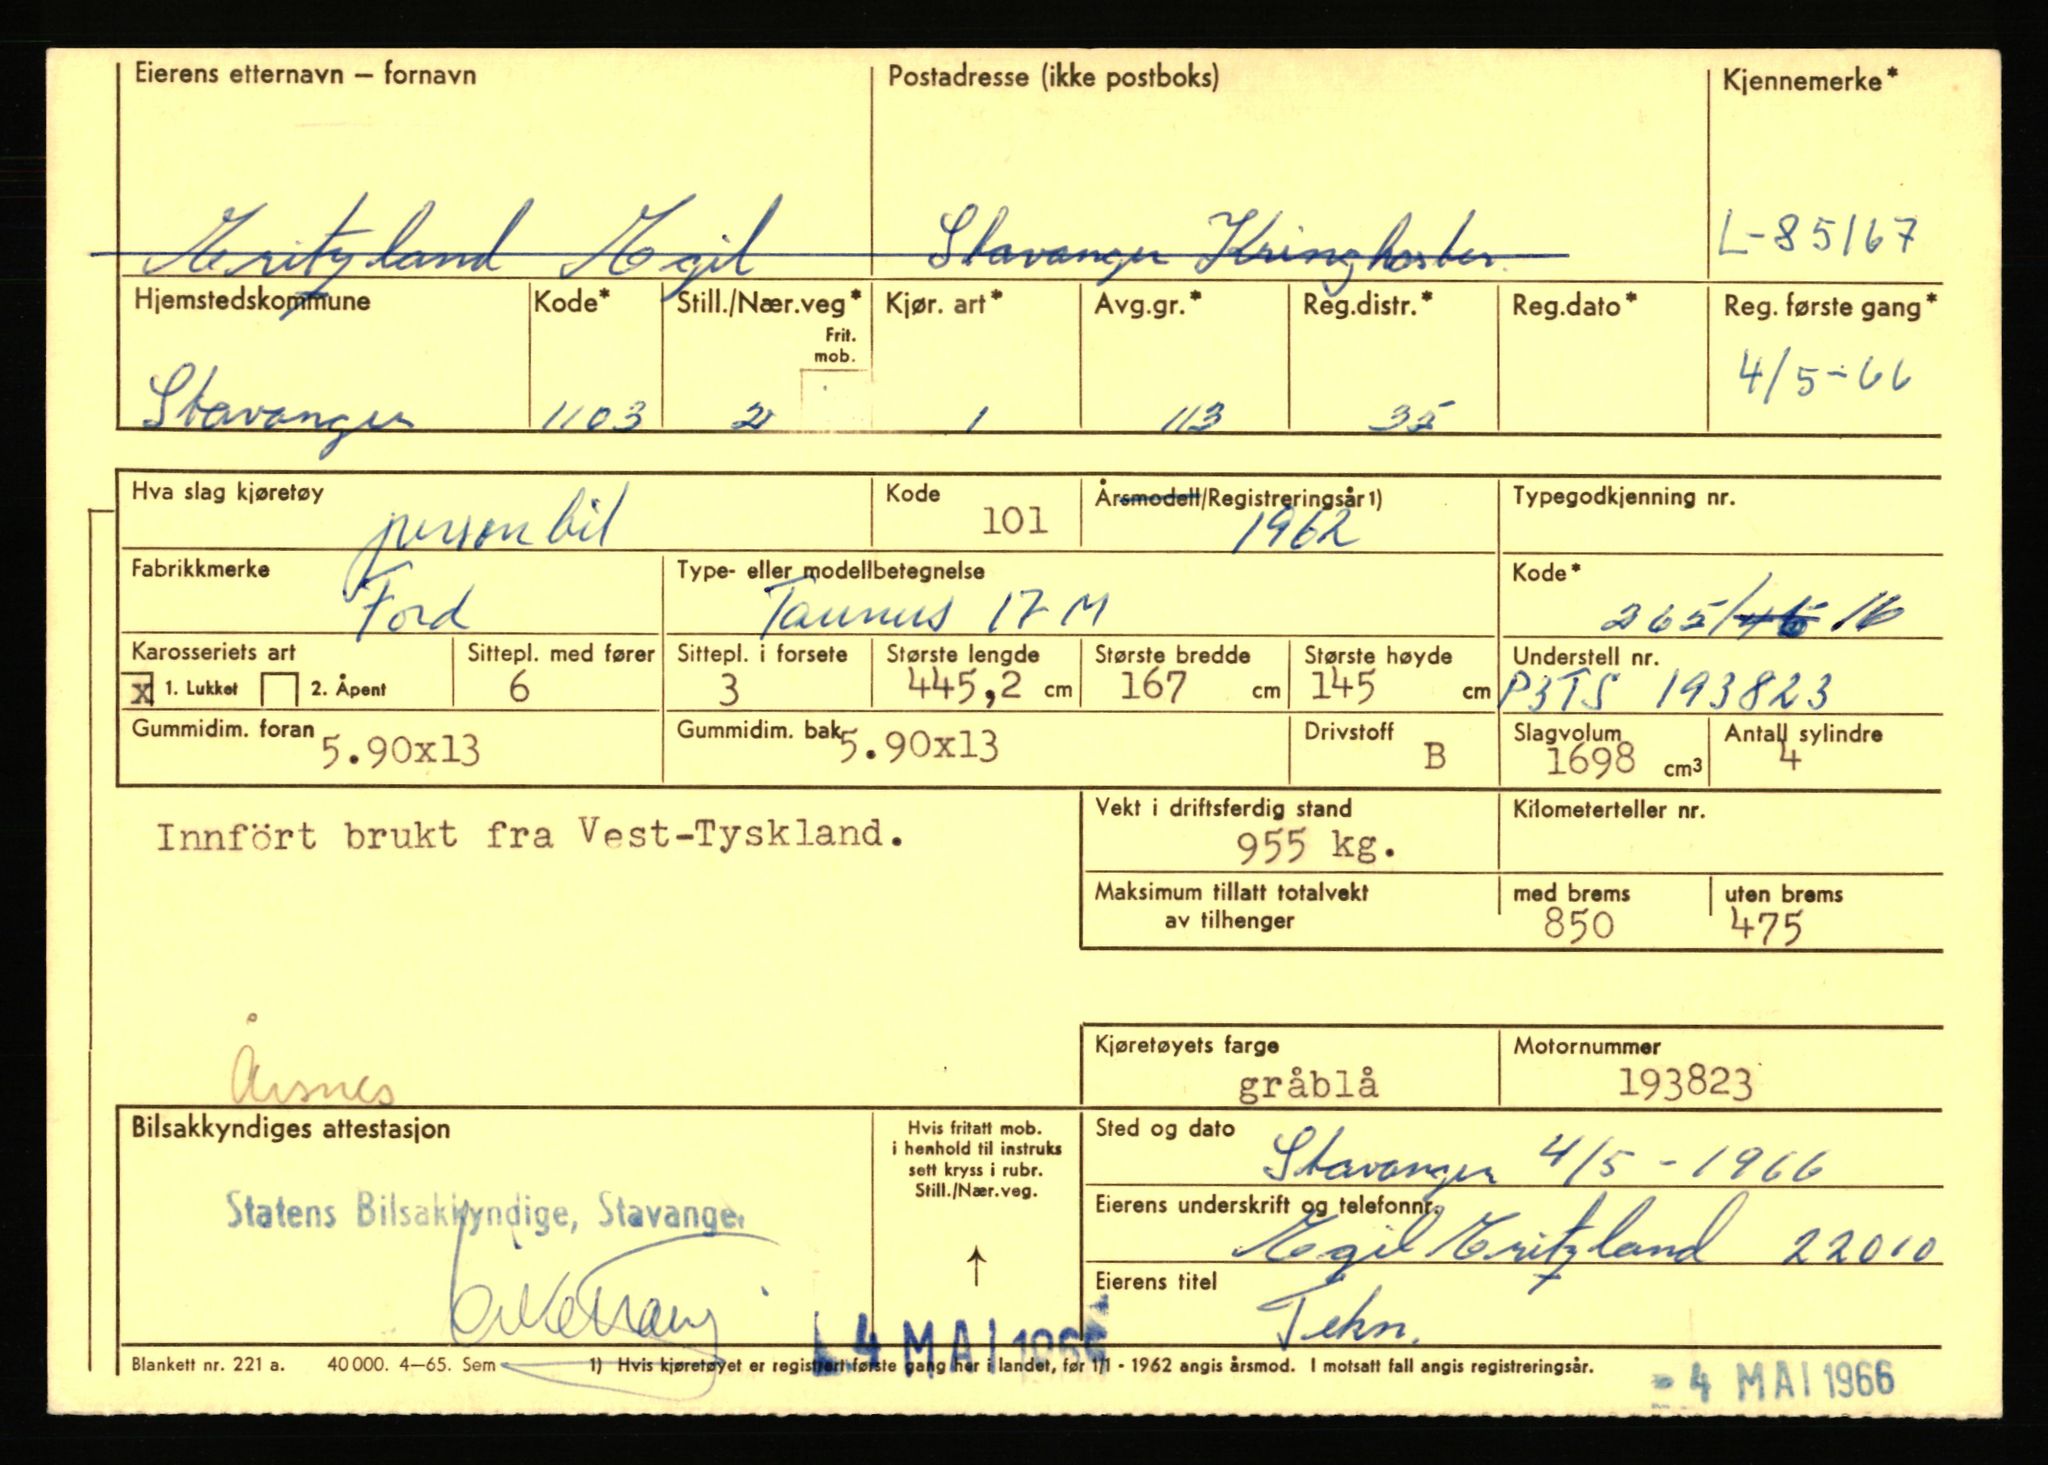 Eierens etternavn – fornavn Postadresse (ikke postboks) Kjennemerke*
Egil Stavanger L-85167
Hjemstedskommune Kode* Still./Nær.veg* Kjør. art* Avg.gr.* Reg.distr.* Reg.dato* Reg. første gang*
Frit.
mob.
Stavanger 1103 2 1 113 35 4/5-66
Hva slag kjøretøy Kode Årsmodell/Registreringsår1) Typegodkjenning nr.
personbil 101 1962
Fabrikkmerke Type- eller modellbetegnelse Kode*
Ford Taunus 17 M 265/ 16
Karosseriets art Sittepl. med fører Sittepl. i forsete Største lengde Største bredde Største høyde Understell nr.
x 1. Lukket 2. Åpent 6 3 445,2 cm 167 cm 145 cm P3TS 193823
Gummidim. foran Gummidim. bak Drivstoff Slagvolum Antall sylindre
5.90x13 5.90x13 B 1698 cm3 4
Vekt i driftsferdig stand Kilometerteller nr.
Innfört brukt fra Vest-Tyskland. 955 kg.
Maksimum tillatt totalvekt med brems uten brems
av tilhenger 850 475
Kjøretøyets farge Motornummer
gråblå 193823
Årsnes
Bilsakkyndiges attestasjon
Hvis fritatt mob.
i henhold til instruks
sett kryss i rubr.
Still./Nær.veg.
Sted og dato
Stavanger 4/5 - 1966
Statens Bilsakkyndige, Stavanger
Eierens underskrift og telefonnr.
Egil 22010
↑
Eierens titel
Tekn.
4 MAI 1966
Blankett nr. 221 a. 40 000. 4–65. Sem 1) Hvis kjøretøyet er registrert første gang her i landet, før 1/1 - 1962 angis årsmod. I motsatt fall angis registreringsår.
- 4 MAI 1966